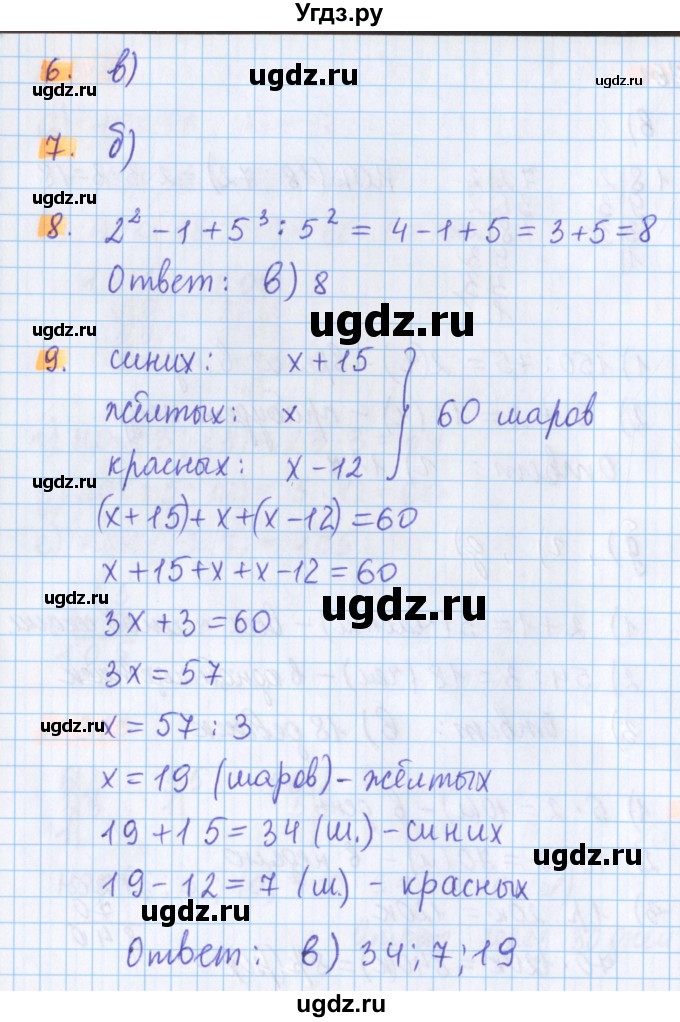 Угдз.ру
6. в)
ugdz.ru
ugdz.ru
ugdz.ru
7. б)
ugdz.ru
8. 2² - 1 + 5³ : 5² = 4 - 1 + 5 = 3 + 5 = 8
Ответ: в) 8
ugdz.ru
ugdz.ru
9. синих: х + 15
жёлтых: х } 60 шаров
красных: х - 12
ugdz.ru
(х + 15) + х + (х - 12) = 60
х + 15 + х + х - 12 = 60
ugdz.ru
ugdz.ru
3х + 3 = 60
3х = 57
ugdz.ru
х = 57 : 3
х = 19 (шаров) - жёлтых
19 + 15 = 34 (ш.) - синих
ugdz.ru
19 - 12 = 7 (ш.) - красных
ugdz.ru
Ответ: в) 34; 7; 19
ugdz.ru